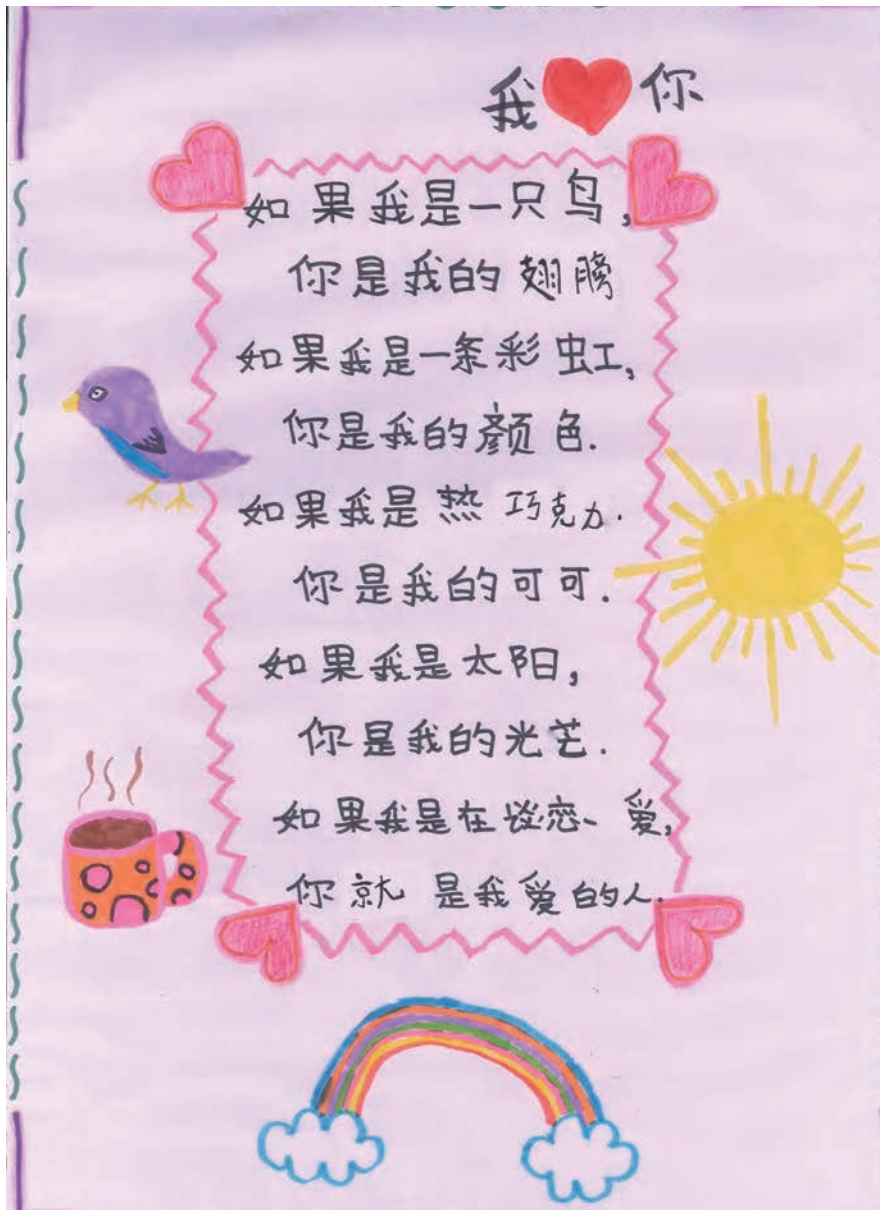 我❤你
如果我是一只鸟,
你是我的翅膀
如果我是一条彩虹,
你是我的颜色.
如果我是热巧克力.
你是我的可可.
如果我是太阳,
你是我的光芒.
如果我是在谈恋爱,
你就是我爱的人.